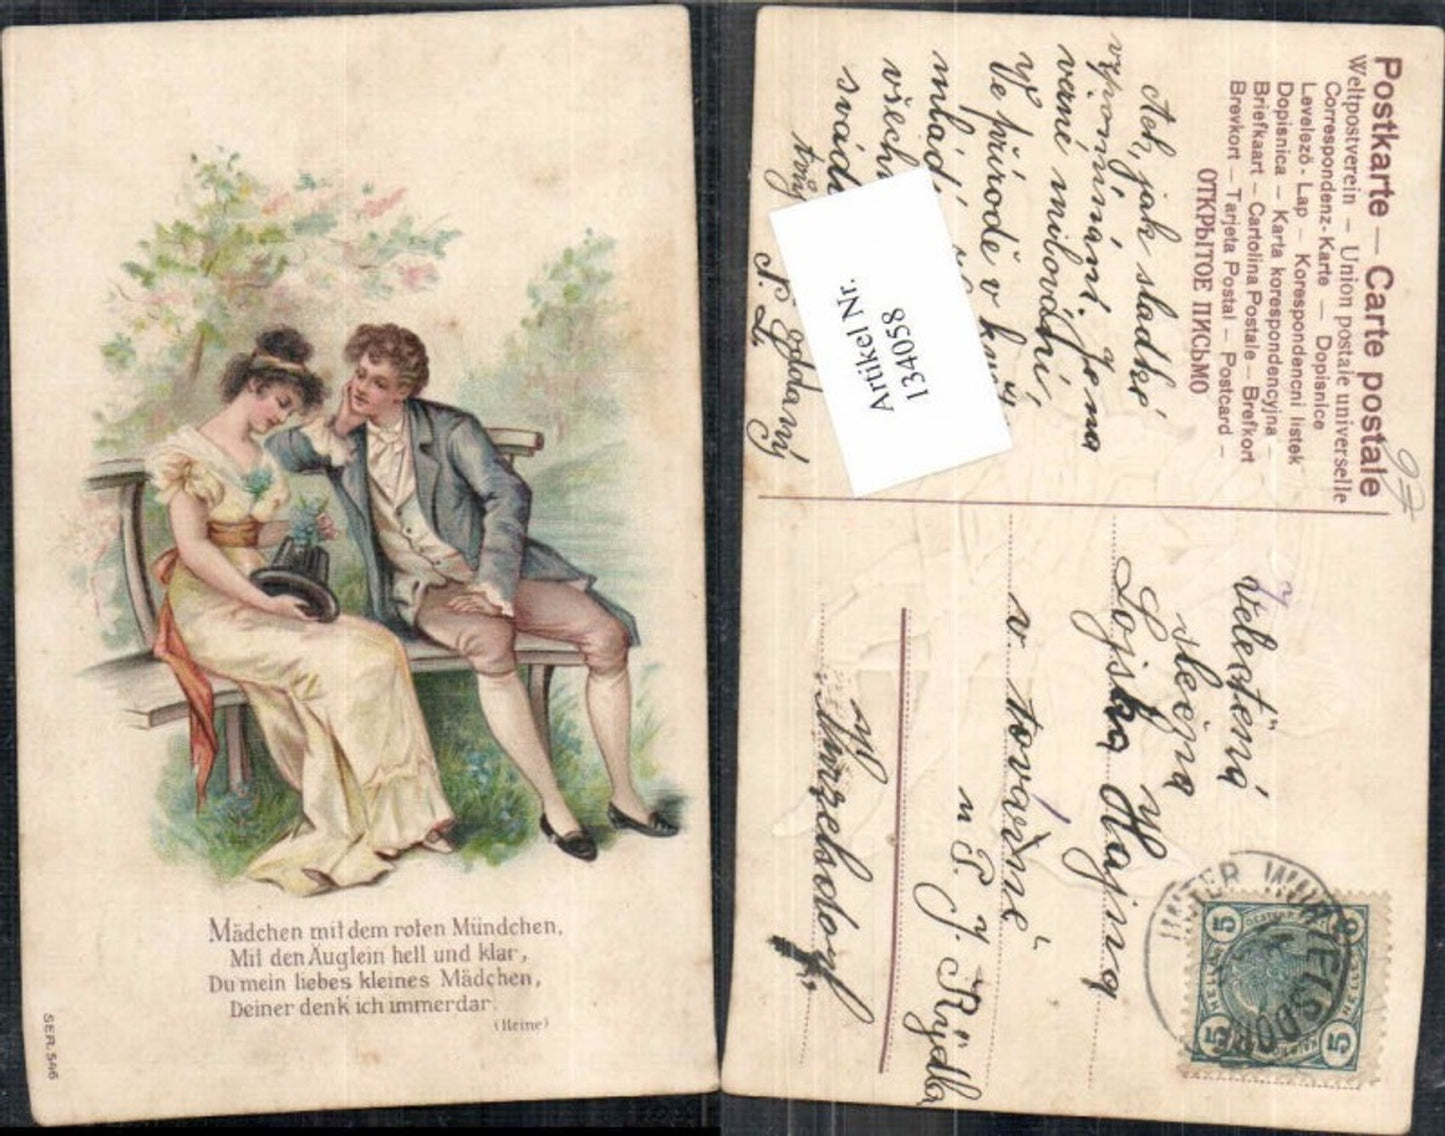 Mädchen mit dem roten Mündchen,
Mit den Äuglein hell und klar,
Du mein liebes kleines Mädchen,
Deiner denk ich immerdar.
(Heine)
SER. 546
Postkarte — Carte postale
Weltpostverein – Union postale universelle
Correspondenz-Karte — Dopisnice
Levelező-Lap – Korespondencni listek
Dopisnica – Karta korespondencyjna –
Briefkaart – Cartolina Postale – Brefkort
Brevkort – Tarjeta Postal – Postcard –
ОТКРЫТОЕ ПИСЬМО
Ach, jak sladké
vzpomínání. Jena
vané milování,
Ve přírodě v
mládí
všech
svád
tvůj oddaný
Artikel Nr.
134058
Velectěná
Slečna
Lojska Hajna
v továrně
u P. J. Rýdla
v
Wurzelsdorf
UNTER WURZELSDORF
5 5 5 5